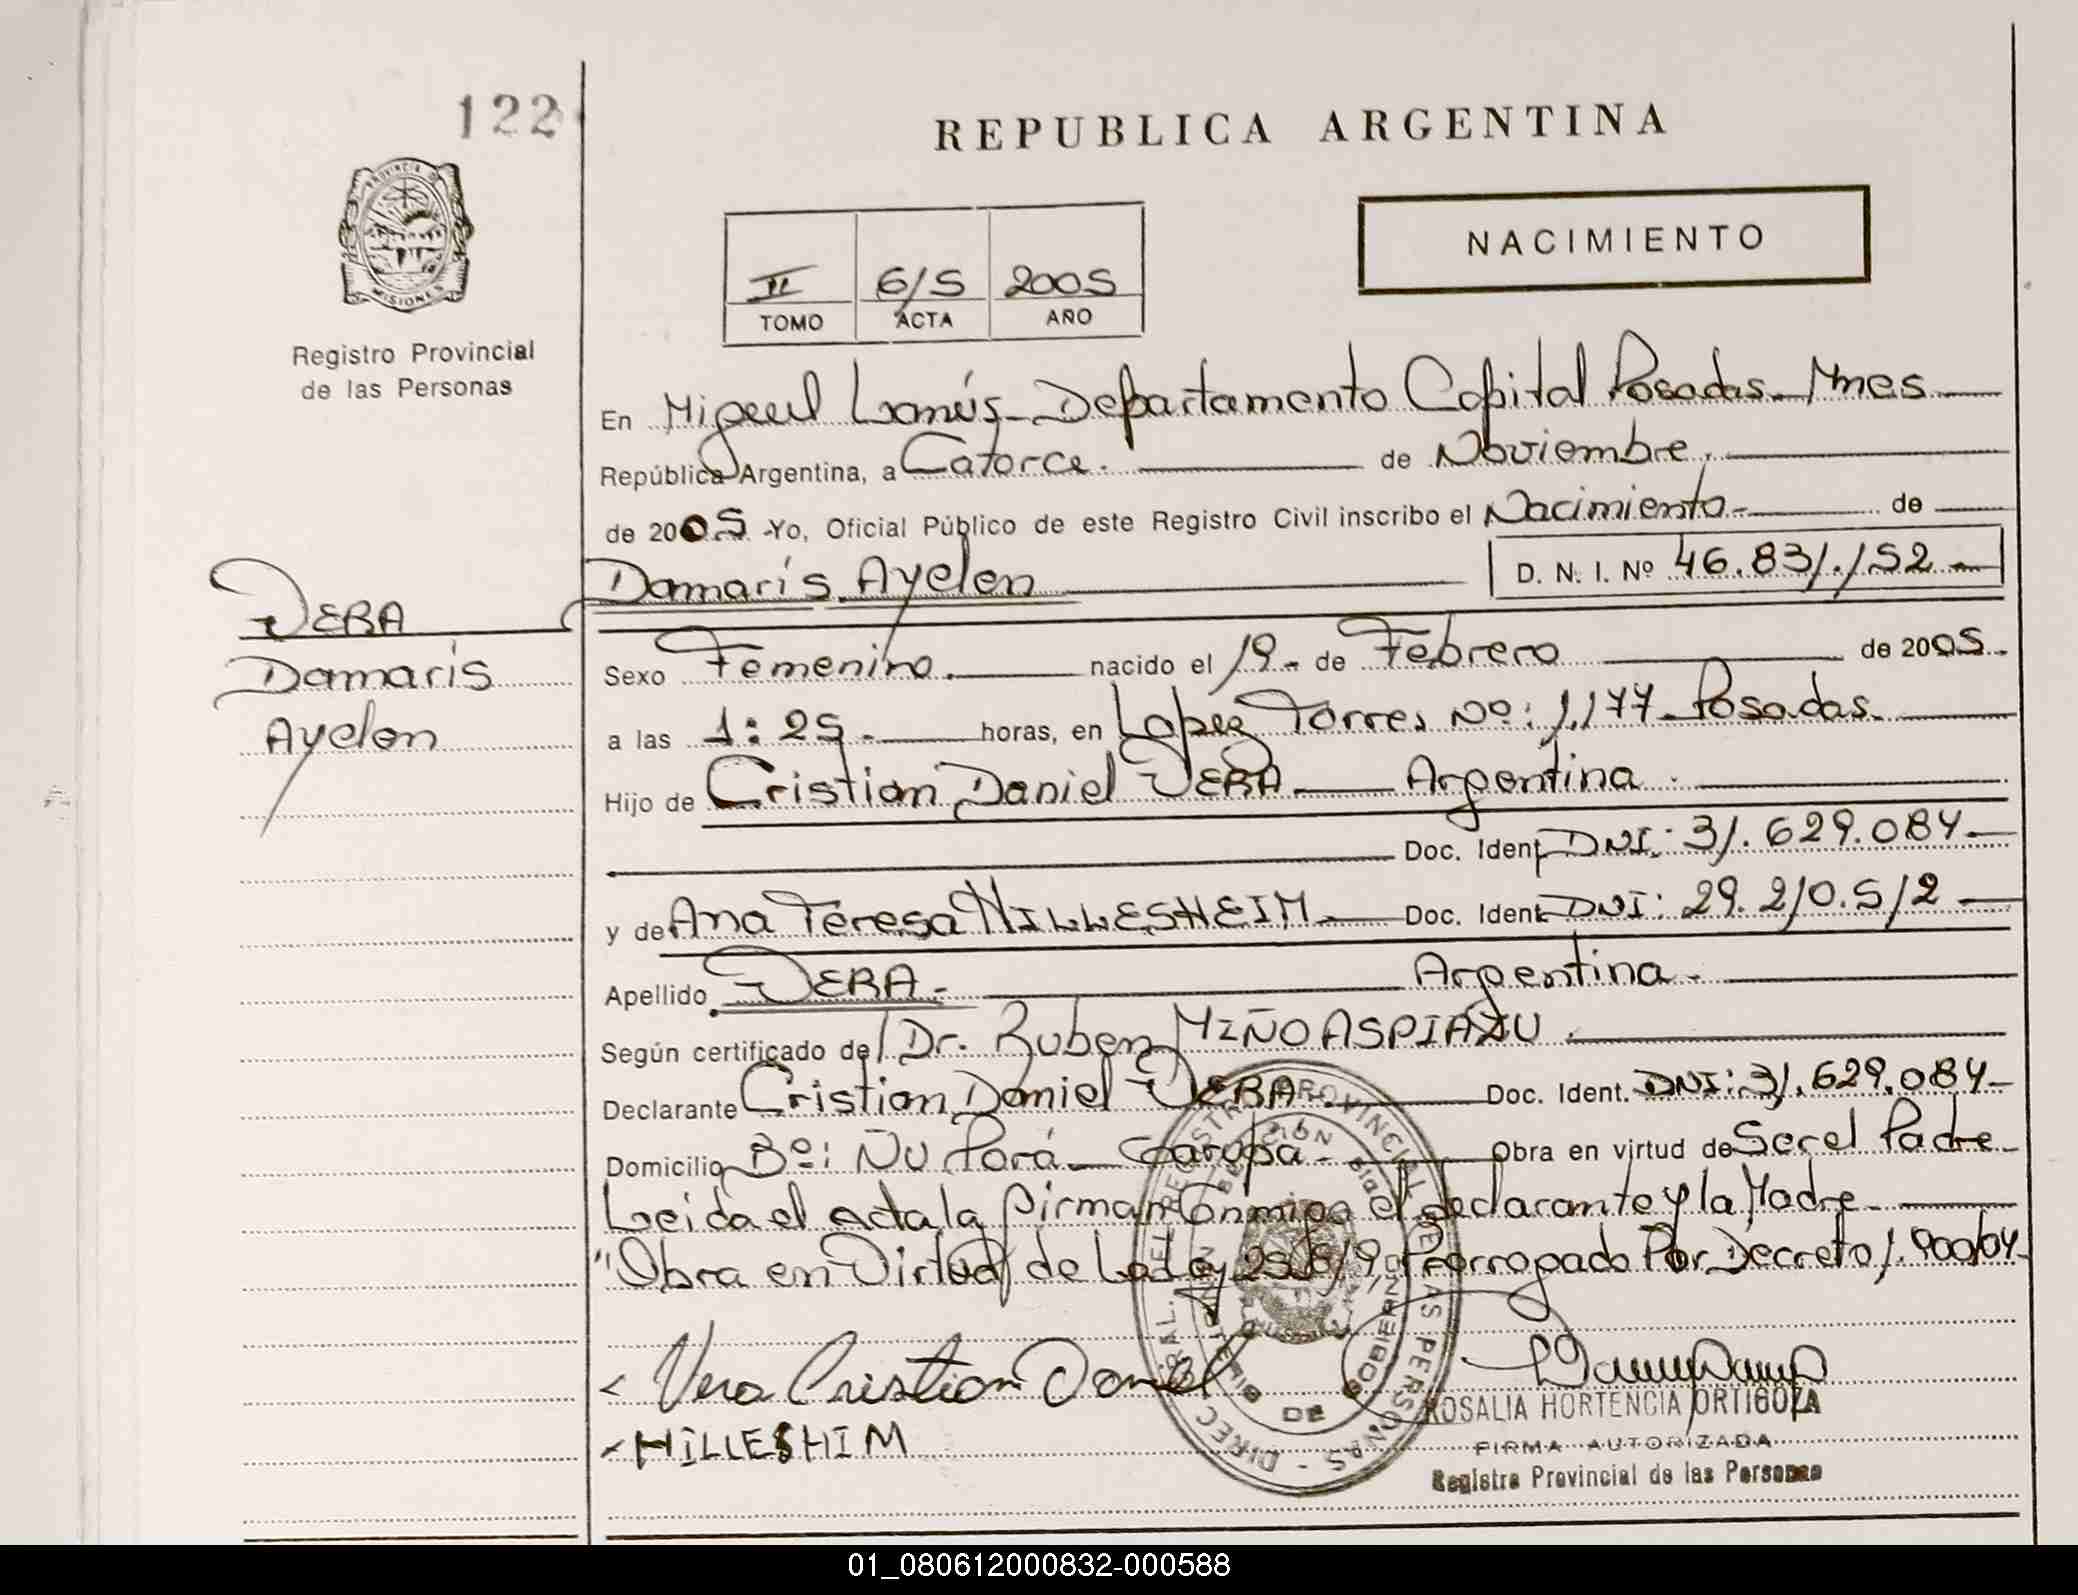 122
REPUBLICA ARGENTINA
PROVINCIA D
MISIONES
NACIMIENTO
II 615 2005
TOMO ACTA AÑO
Registro Provincial
de las Personas
En Miguel Lanús - Departamento Capital Posadas - Mnes
República Argentina, a Catorce. de Noviembre
de 2005 Yo, Oficial Público de este Registro Civil inscribo el Nacimiento - de
Damaris Ayelen D. N. I. Nº 46.831.152 -
VERA
Damaris
Ayelen
Sexo Femenino. nacido el 19 - de Febrero de 2005.
a las 1:25 - horas, en Lopez Torres Nº: 1.177 - Posadas.
Hijo de Cristian Daniel VERA Argentina.
Doc. Ident DNI: 31.629.084 -
y de Ana Teresa HILLESHEIM - Doc. Ident. DNI: 29.210.512 -
Apellido VERA - Argentina -
Según certificado de Dr. Ruben MIÑO ASPIAZU.
Declarante Cristian Daniel VERA Doc. Ident. DNI: 31.629.084 -
Domicilio Bº: Ñu Porá - Garupa - Obra en virtud de Ser el Padre -
Leida el acta la firman Conmigo el declarante y la Madre -
"Obra en Virtud de la Ley 25.819 Prorrogado Por Decreto 1.900/04 -
Vera Cristian Daniel
ROSALIA HORTENCIA ORTIGOZA
HILLESHIM
FIRMA AUTORIZADA
Registro Provincial de las Personas
01_080612000832-000588